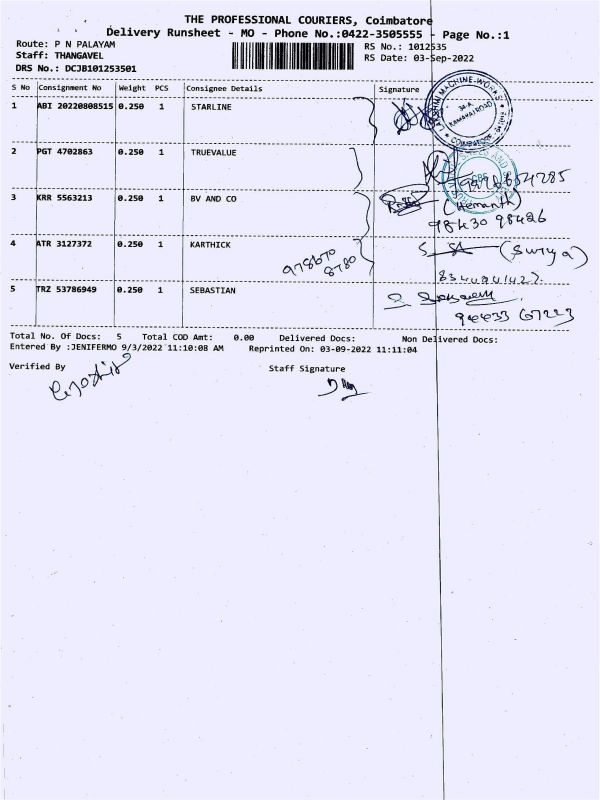 THE PROFESSIONAL COURIERS, Coimbatore
Delivery Runsheet - MO - Phone No.:0422-3505555 - Page No.:1
Route: P N PALAYAM RS No.: 1012535
Staff: THANGAVEL RS Date: 03-Sep-2022
DRS No.: DCJB101253501
S No Consignment No Weight PCS Consignee Details Signature
1 ABI 20220808515 0.250 1 STARLINE
LAKSHMI MACHINE WORKS
34-A
KAMARAJ ROAD
COIMBATORE
2 PGT 4702863 0.250 1 TRUEVALUE
3 KRR 5563213 0.250 1 BV AND CO (Hemanth)
98430 98426
4 ATR 3127372 0.250 1 KARTHICK (Surya)
978670
8780
5 TRZ 53786949 0.250 1 SEBASTIAN
94433 67223
Total No. Of Docs: 5 Total COD Amt: 0.00 Delivered Docs: Non Delivered Docs:
Entered By :JENIFERMO 9/3/2022 11:10:08 AM Reprinted On: 03-09-2022 11:11:04
Verified By Staff Signature